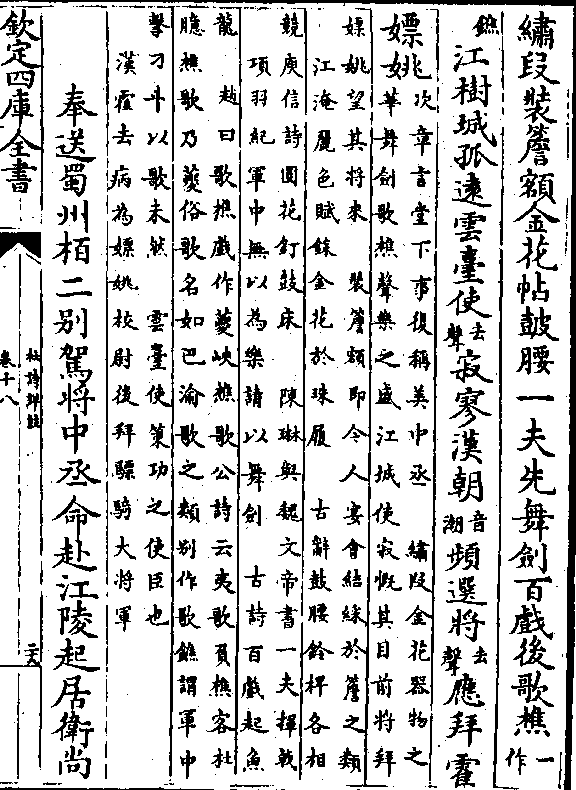 繡段裝簷額金花帖鼓腰一夫先舞劍百戲後歌樵一作
鐎江樹城孤遠雲臺使去聲寂寥漢朝音潮頻選將去聲應拜霍
嫖姚次章言堂下事復稱美中丞　繡段金花器物之
華舞劍歌樵聲樂之盛江城使寂慨其目前將拜
嫖姚望其將來　裝簷額即今人宴會結綵於簷之類
江淹麗色賦錸金花於珠履　古辭鼓腰鈴柈各相
競庾信詩圓花釘鼓床　陳琳與魏文帝書一夫揮戟
項羽紀軍中無以為樂請以舞劍　古詩百戲起魚
龍　趙曰歌樵戲作夔峽樵歌公詩云夷歌負樵客杜
臆樵歌乃夔俗歌名如巴渝歌之類別作歌鐎謂軍中
擊刁斗以歌未然　雲臺使策功之使臣也
漢霍去病為嫖姚校尉後拜驃騎大將軍
奉送蜀州栢二别駕將中丞命赴江陵起居衛尚
欽定四庫全書
杜詩詳註
卷十八
二六